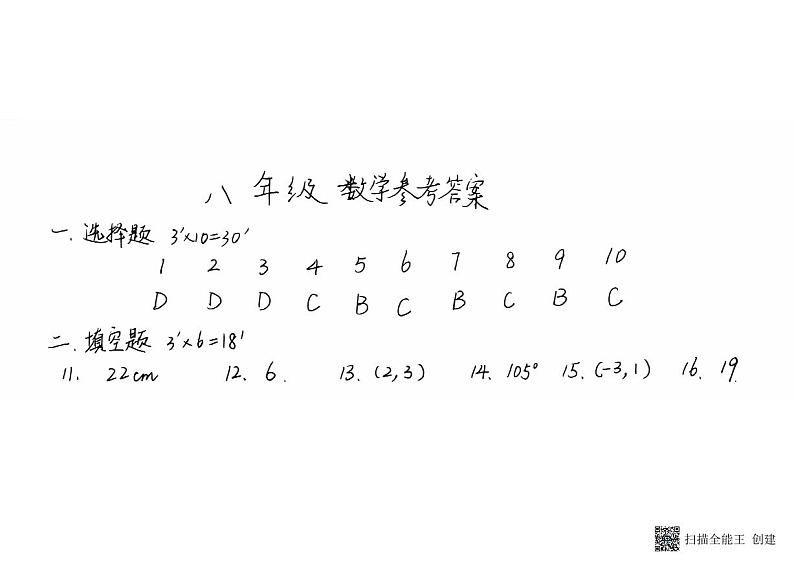 八年级 数学参考答案
一.选择题 3'×10=30'
1 2 3 4 5 6 7 8 9 10
D D D C B C B C B C
二.填空题 3'×6=18'
11. 22cm 12. 6. 13. (2,3) 14. 105° 15. (-3,1) 16. 19.
扫描全能王 创建